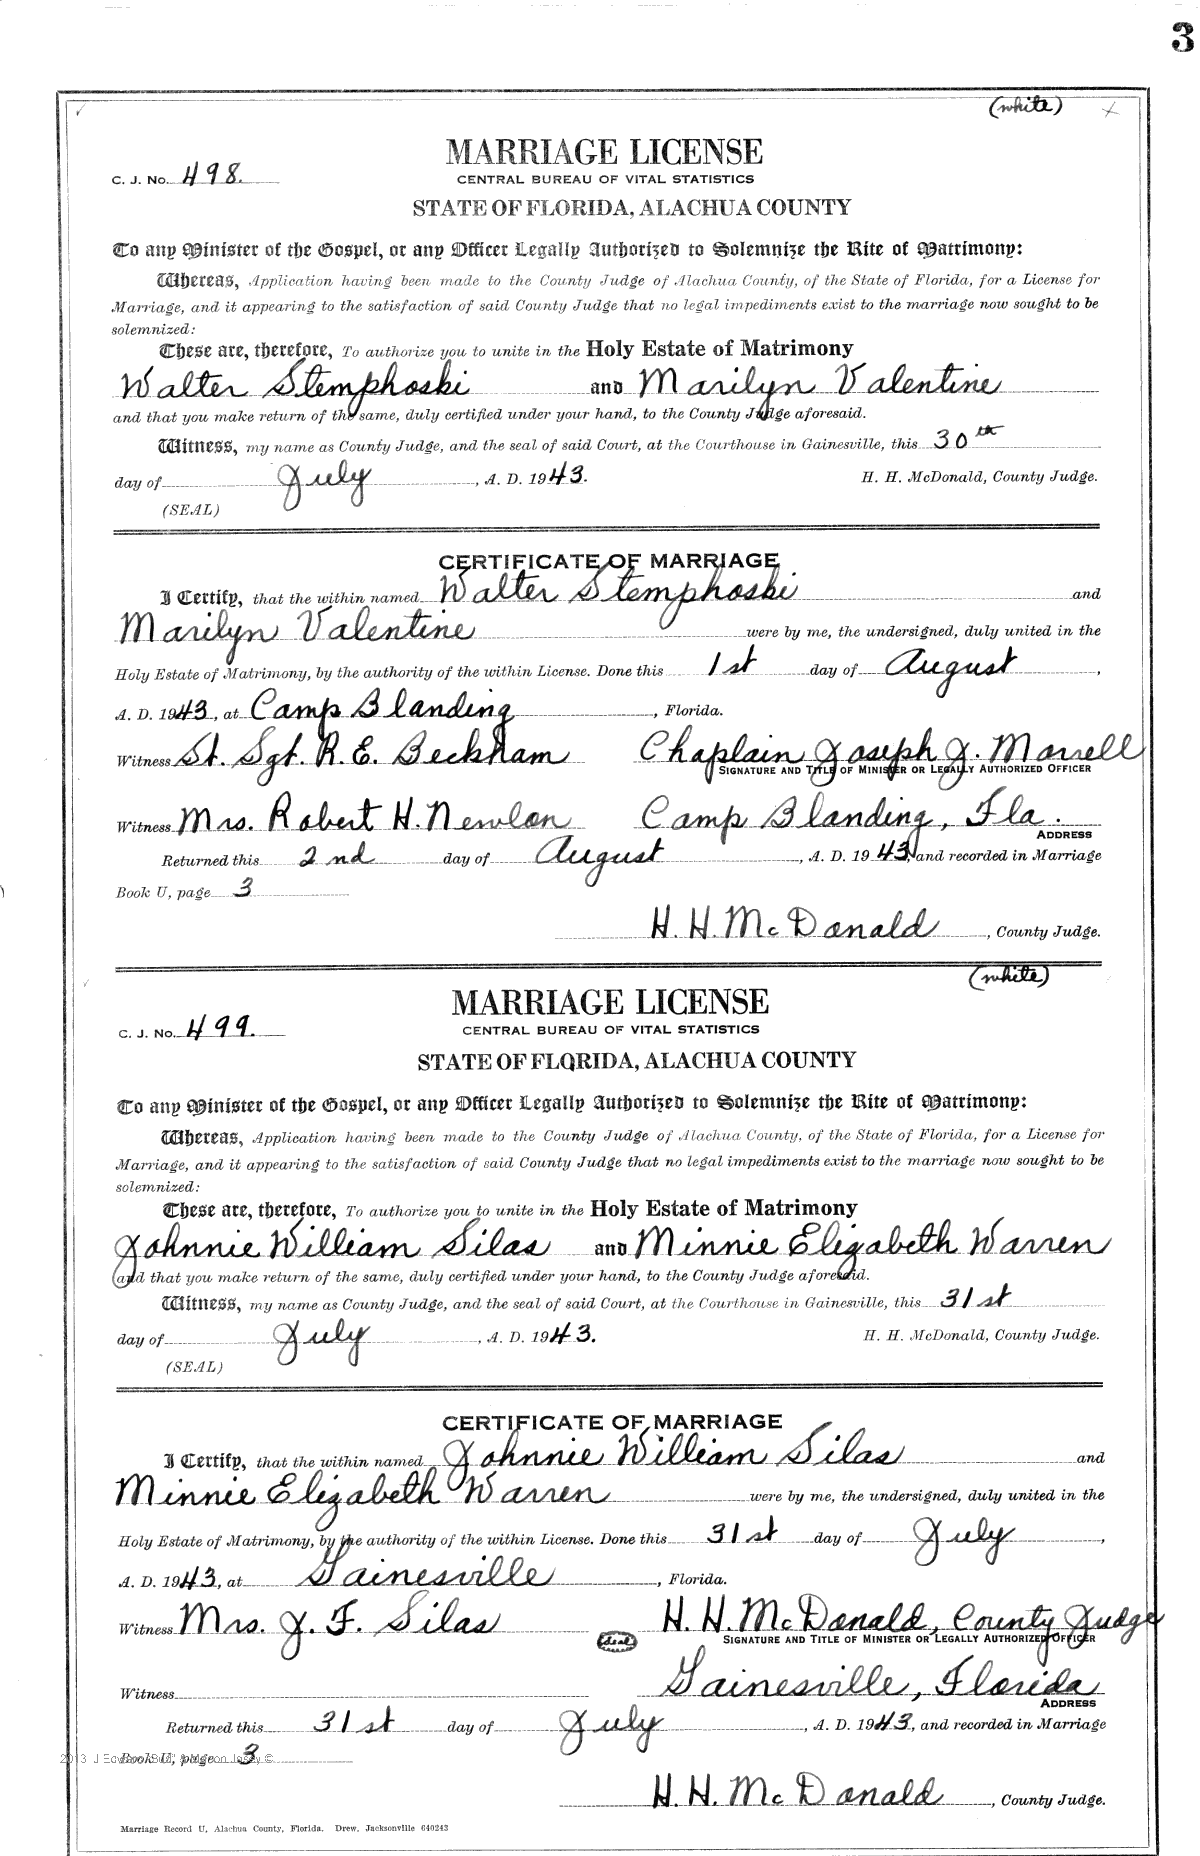 3
(white)
MARRIAGE LICENSE
C. J. No. 498.
CENTRAL BUREAU OF VITAL STATISTICS
STATE OF FLORIDA, ALACHUA COUNTY
To any Minister of the Gospel, or any Officer Legally Authorized to Solemnize the Rite of Matrimony:
Whereas, Application having been made to the County Judge of Alachua County, of the State of Florida, for a License for
Marriage, and it appearing to the satisfaction of said County Judge that no legal impediments exist to the marriage now sought to be
solemnized:
These are, therefore, To authorize you to unite in the Holy Estate of Matrimony
Walter Stemphoski and Marilyn Valentine
and that you make return of the same, duly certified under your hand, to the County Judge aforesaid.
Witness, my name as County Judge, and the seal of said Court, at the Courthouse in Gainesville, this 30th
day of July, A. D. 1943. H. H. McDonald, County Judge.
(SEAL)
CERTIFICATE OF MARRIAGE
I Certify, that the within named Walter Stemphoski and
Marilyn Valentine were by me, the undersigned, duly united in the
Holy Estate of Matrimony, by the authority of the within License. Done this 1st day of August,
A. D. 1943, at Camp Blanding, Florida.
Witness St. Sgt. R. E. Beckham Chaplain Joseph J. Morrell
SIGNATURE AND TITLE OF MINISTER OR LEGALLY AUTHORIZED OFFICER
Witness Mrs. Robert H. Newlon Camp Blanding, Fla.
ADDRESS
Returned this 2nd day of August, A. D. 1943, and recorded in Marriage
Book U, page 3
H. H. McDonald, County Judge.
(white)
MARRIAGE LICENSE
C. J. No. 499.
CENTRAL BUREAU OF VITAL STATISTICS
STATE OF FLORIDA, ALACHUA COUNTY
To any Minister of the Gospel, or any Officer Legally Authorized to Solemnize the Rite of Matrimony:
Whereas, Application having been made to the County Judge of Alachua County, of the State of Florida, for a License for
Marriage, and it appearing to the satisfaction of said County Judge that no legal impediments exist to the marriage now sought to be
solemnized:
These are, therefore, To authorize you to unite in the Holy Estate of Matrimony
Johnnie William Silas and Minnie Elizabeth Warren
and that you make return of the same, duly certified under your hand, to the County Judge aforesaid.
Witness, my name as County Judge, and the seal of said Court, at the Courthouse in Gainesville, this 31st
day of July, A. D. 1943. H. H. McDonald, County Judge.
(SEAL)
CERTIFICATE OF MARRIAGE
I Certify, that the within named Johnnie William Silas and
Minnie Elizabeth Warren were by me, the undersigned, duly united in the
Holy Estate of Matrimony, by the authority of the within License. Done this 31st day of July,
A. D. 1943, at Gainesville, Florida.
Witness Mrs. J. F. Silas H. H. McDonald, County Judge
(seal) SIGNATURE AND TITLE OF MINISTER OR LEGALLY AUTHORIZED OFFICER
Witness Gainesville, Florida
ADDRESS
Returned this 31st day of July, A. D. 1943, and recorded in Marriage
Book U, page 3
H. H. McDonald, County Judge.
Marriage Record U, Alachua County, Florida. Drew, Jacksonville 640243